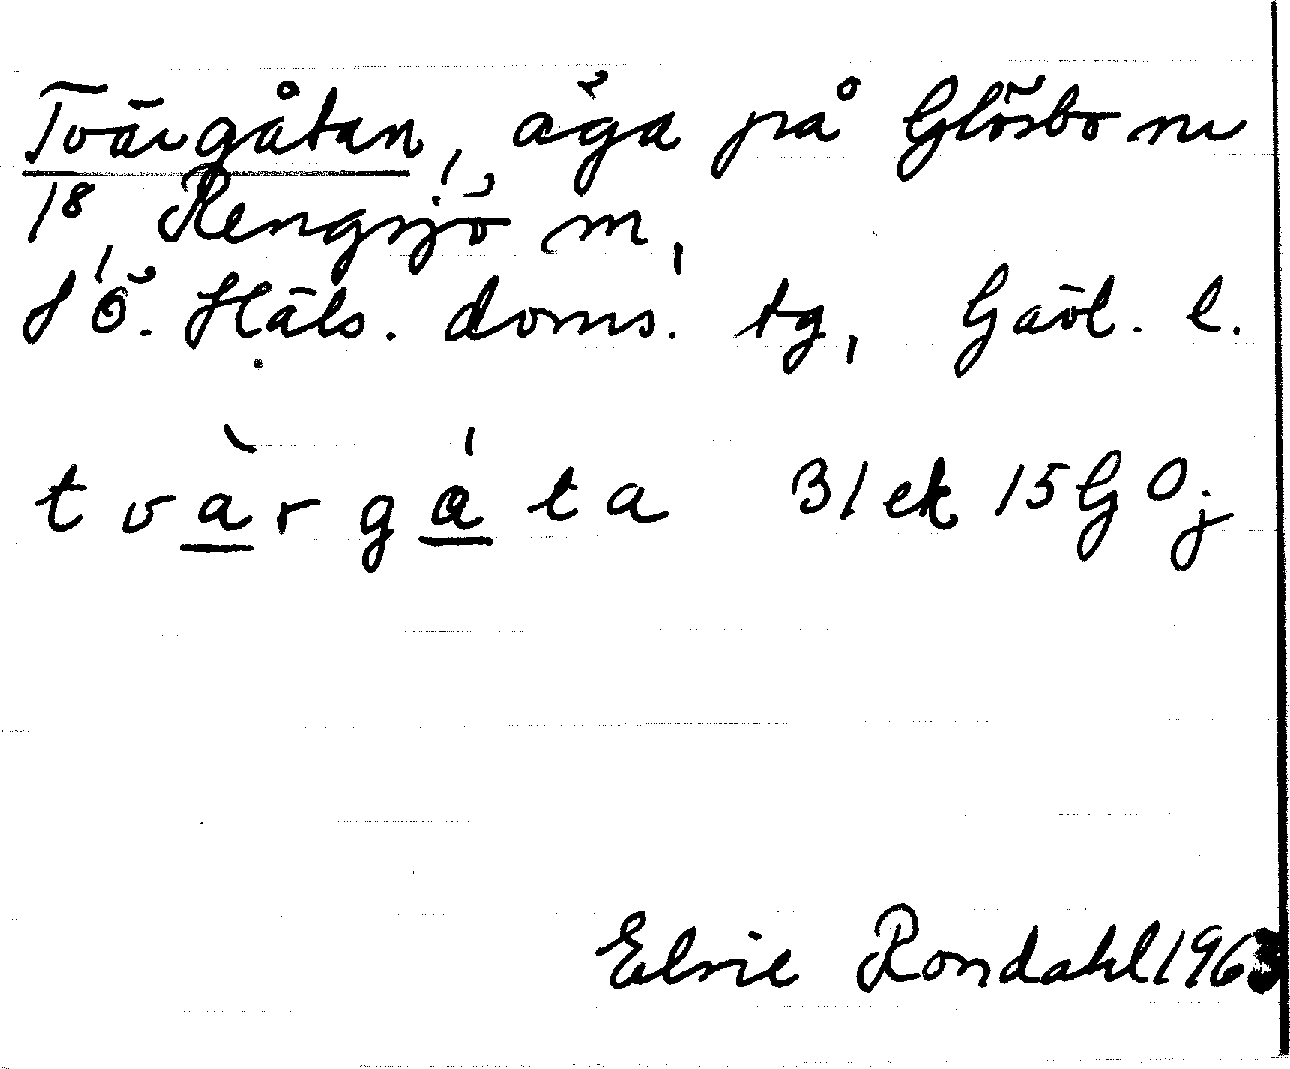 Tvärgåtan, äga på Glösbo nr
18, Rengsjö sn,
SÖ. Häls. doms. tg, Gävl. l.
tvàrgáta 31 ek 15G Oj
Elsie Rondahl 1963